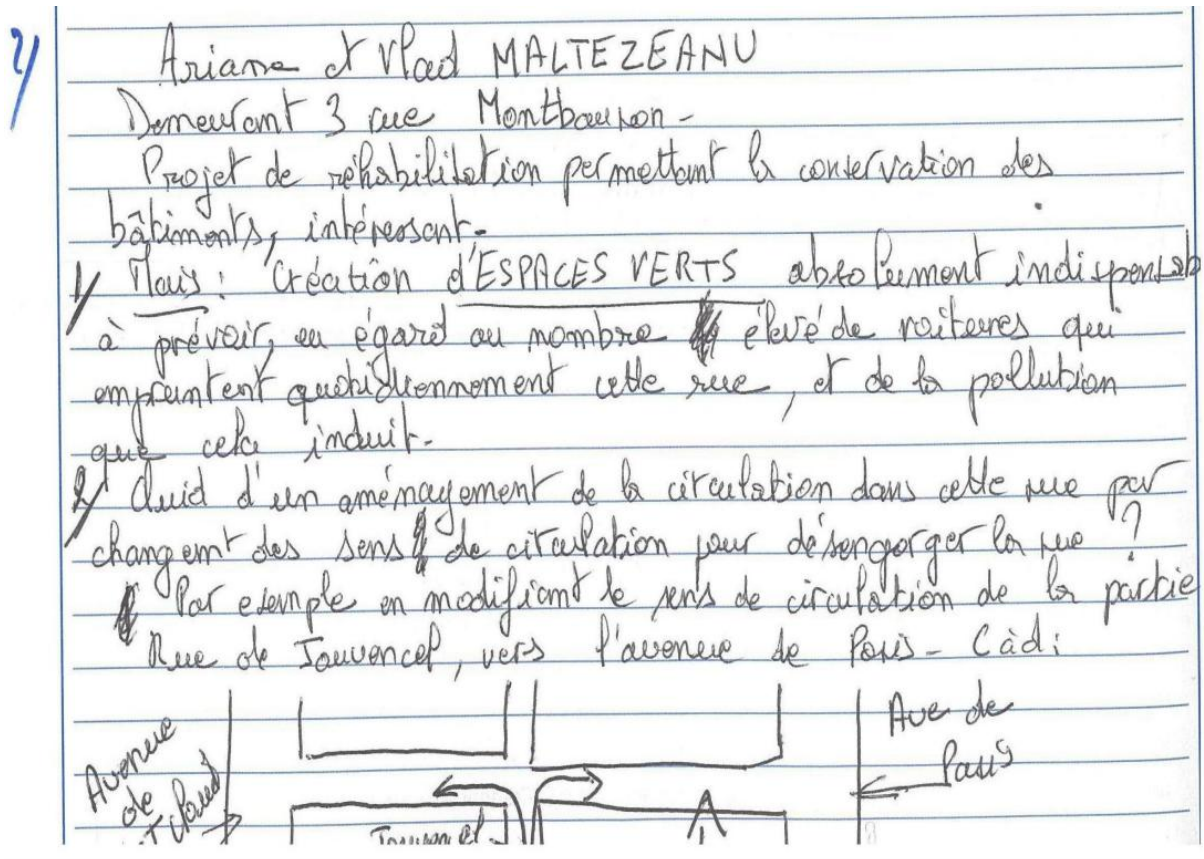 2/
Ariane et Vlad MALTEZEANU
Demeurant 3 rue Montbauron -
Projet de réhabilitation permettant la conservation des
bâtiments, intéressant.
1/ Mais : Création d'ESPACES VERTS absolument indispensab
à prévoir, eu égard au nombre élevé de voitures qui
empruntent quotidiennement cette rue, et de la pollution
que cela induit.
2/ Quid d'un aménagement de la circulation dans cette rue par
changemt des sens de circulation pour désengorger la rue ?
Par exemple en modifiant le sens de circulation de la partie
Rue de Jouvencel, vers l'avenue de Paris - Càd :
Avenue
de
St Cloud
Jouvencel
Ave de
Paris